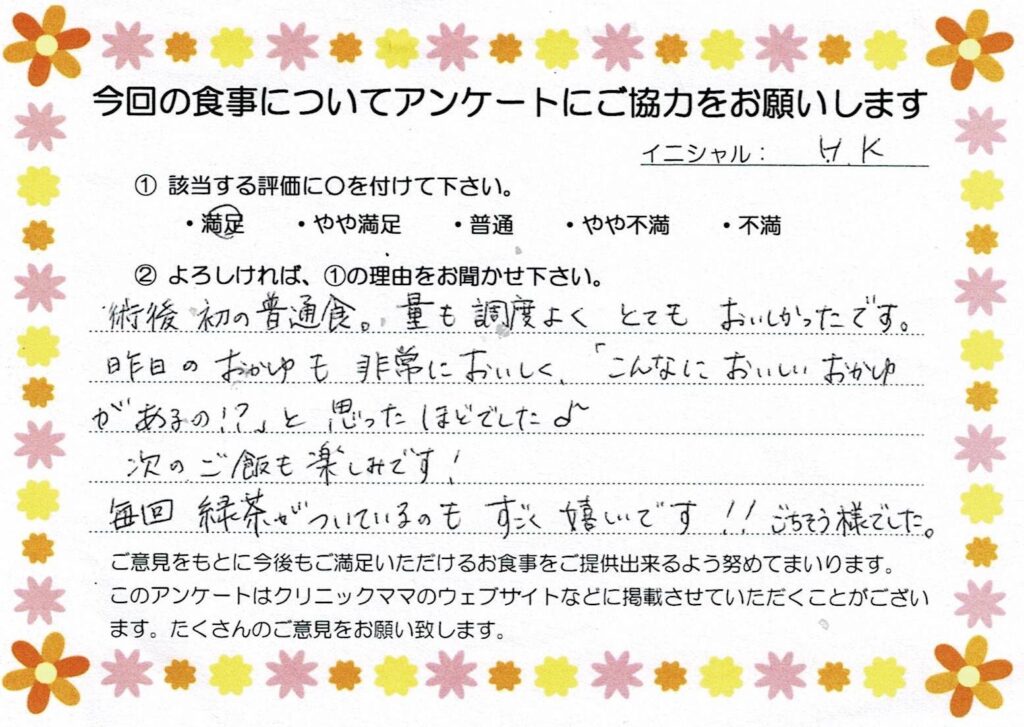 今回の食事についてアンケートにご協力をお願いします
イニシャル： H.K
① 該当する評価に〇を付けて下さい。
・満足 ・やや満足 ・普通 ・やや不満 ・不満
② よろしければ、①の理由をお聞かせ下さい。
術後初の普通食。量も調度よくとてもおいしかったです。
昨日のおかゆも非常においしく、「こんなにおいしいおかゆ
があるの!?」と思ったほどでした♪
次のご飯も楽しみです!
毎回緑茶がついているのもすごく嬉しいです!!ごちそう様でした。
ご意見をもとに今後もご満足いただけるお食事をご提供出来るよう努めてまいります。
このアンケートはクリニックママのウェブサイトなどに掲載させていただくことがござい
ます。たくさんのご意見をお願い致します。